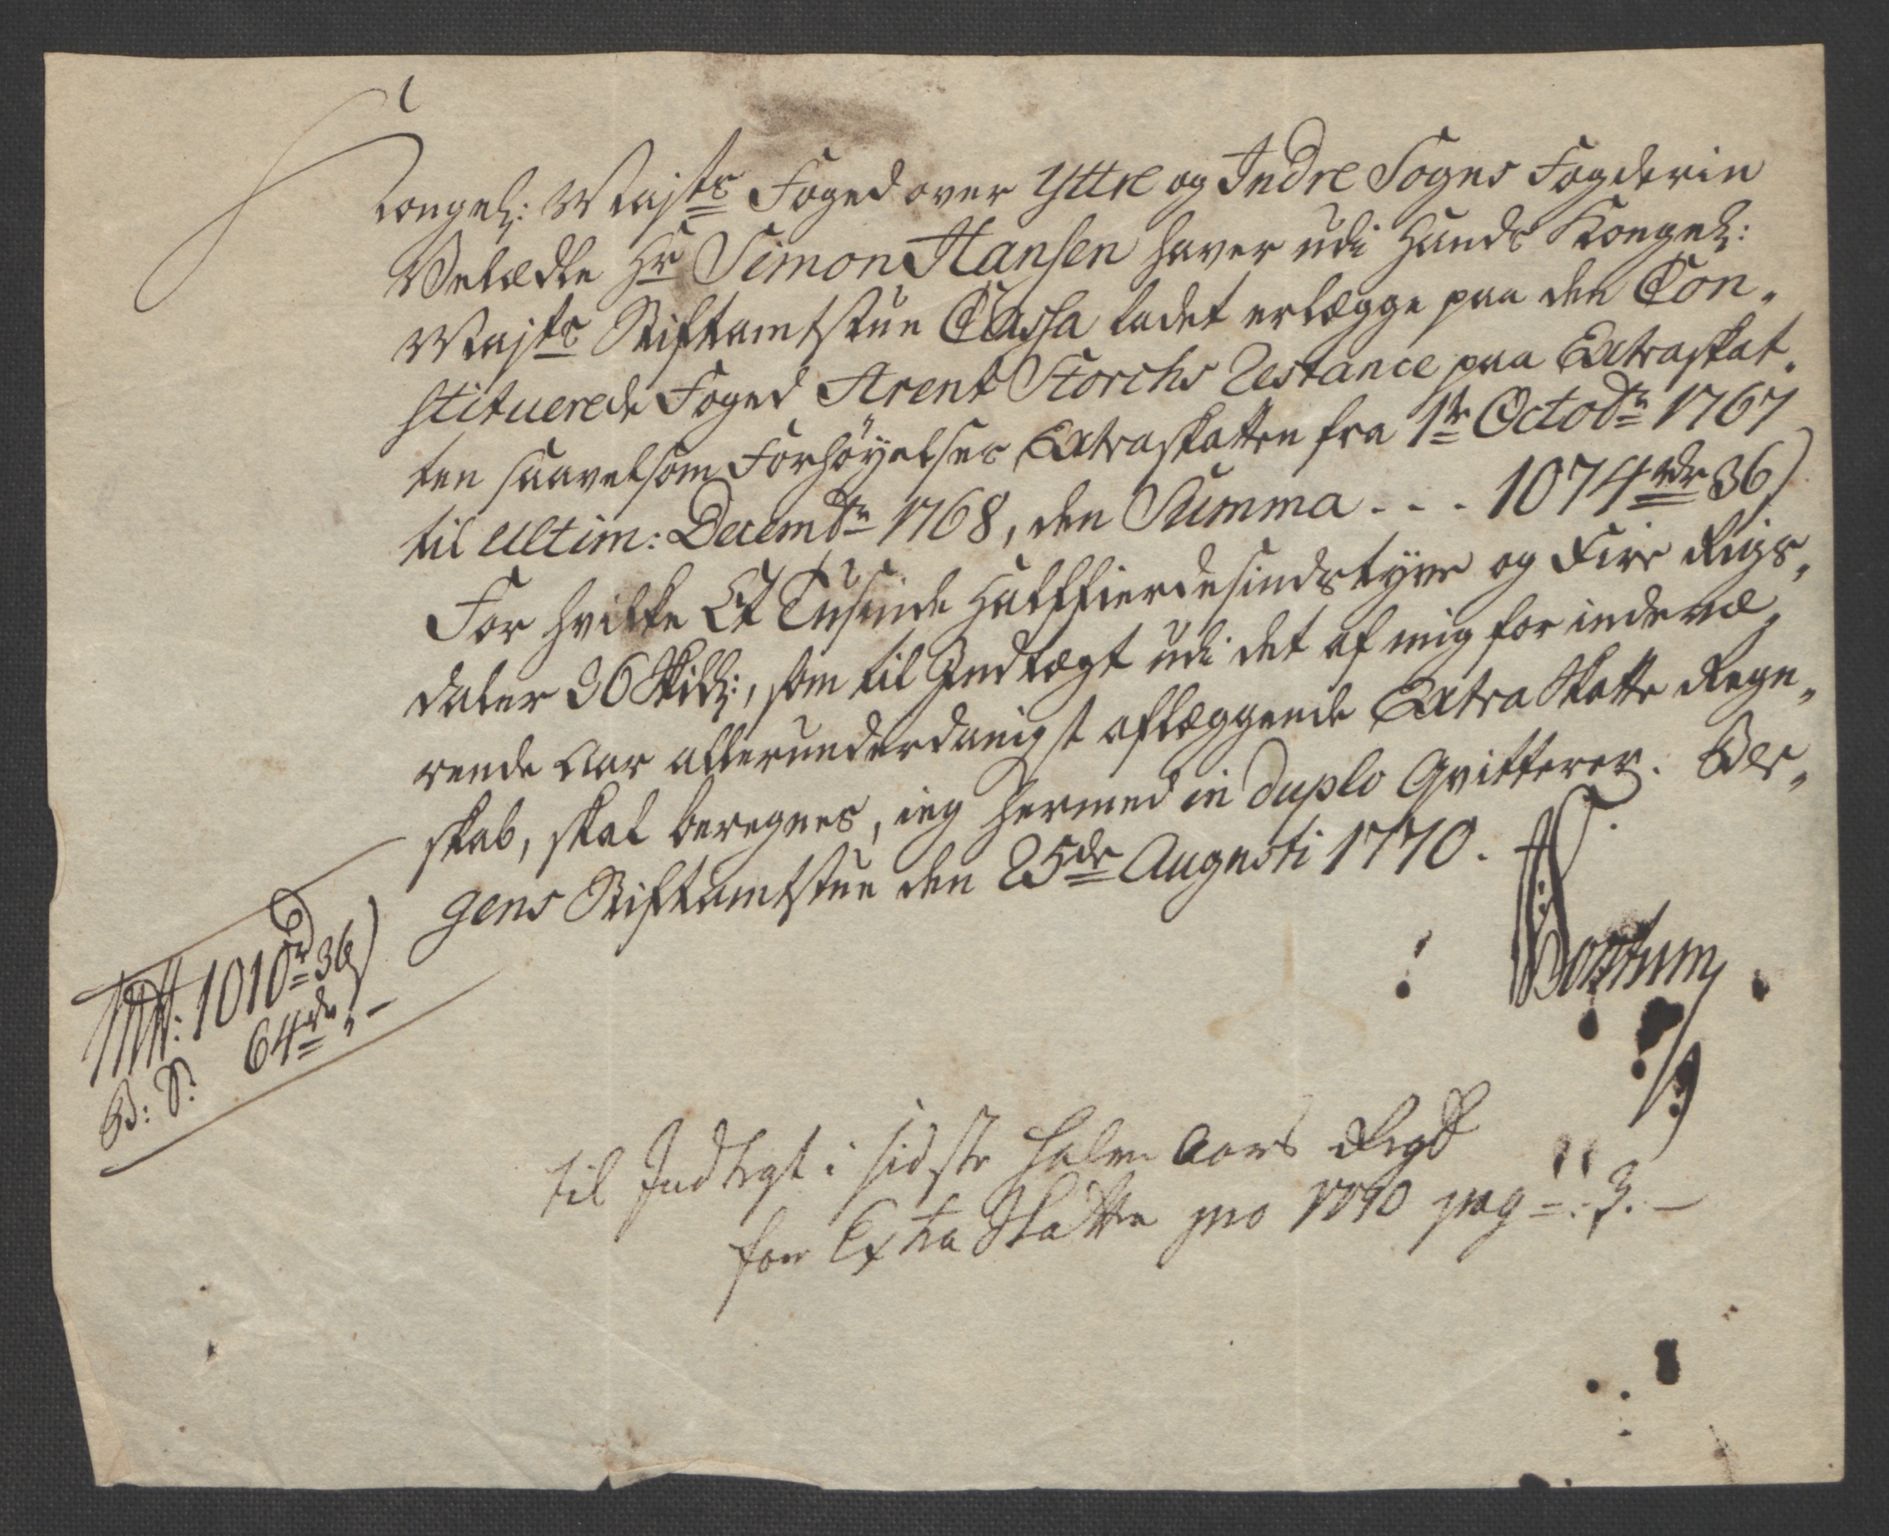 Kongel: Mayts Foged over Yttre og Indre Sogns Fogderie
Velædle Hr Simon Hansen haver udi Hands Kongel:
Mayts Stiftamtstue Cassa ladet erlægge paa den Con„
stituerede Foged Arent Storchs Restance paa Extraskat„
ten saavelsom Forhøyelses Extraskatten fra 1te Octobr 1767
til Ultim: Decembr 1768, den Summa . . . 1074rdr 36s
For hvilke Et Tusinde Halffierdesindstyve og Fire Rigs„
daler 36 Skill:, som til Indtægt udi det af mig for indevæ„
rende Aar allerunderdanigst aflæggende Extra Skatte Regn„
skab, skal beregnes, ieg hermed in duplo Qvitterer. Ber„
gens Stiftamtstue den 25de Augusti 1770.
1010r 36s
B: S: 64rdr „ –
til Indtegt i sidste halve Aars Regsk
for Extra Skatten pro 1770 pag = : 3. –